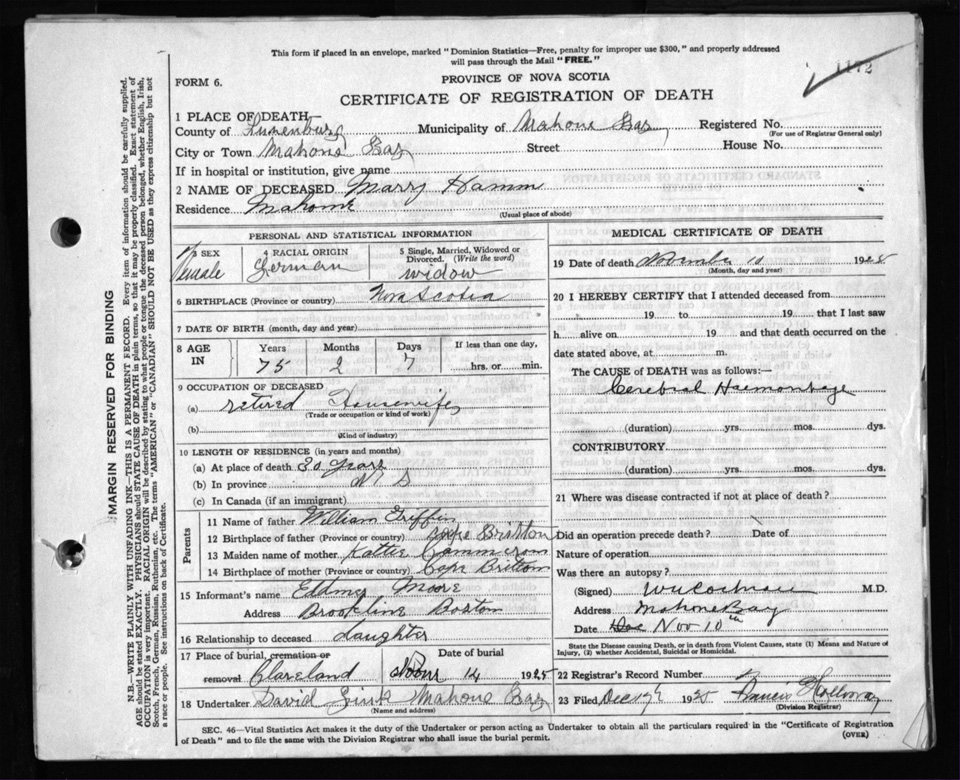 This form if placed in an envelope, marked "Dominion Statistics—Free, penalty for improper use $300," and properly addressed
will pass through the Mail "FREE."
1172
FORM 6.
PROVINCE OF NOVA SCOTIA
CERTIFICATE OF REGISTRATION OF DEATH
1 PLACE OF DEATH
County of Lunenburg Municipality of Mahone Bay Registered No.
(For use of Registrar General only)
City or Town Mahone Bay Street House No.
If in hospital or institution, give name
2 NAME OF DECEASED Marry Hamm
Residence Mahone
(Usual place of abode)
PERSONAL AND STATISTICAL INFORMATION
3 SEX
Female
4 RACIAL ORIGIN
German
5 Single, Married, Widowed or
Divorced. (Write the word)
widow
6 BIRTHPLACE (Province or country) Nova Scotia
7 DATE OF BIRTH (month, day and year)
8 AGE
IN
Years Months Days
75 2 7
If less than one day,
hrs. or min.
9 OCCUPATION OF DECEASED
(a) retired Housewife
(Trade or occupation or kind of work)
(b)
(Kind of industry)
10 LENGTH OF RESIDENCE (in years and months)
(a) At place of death 30 years
(b) In province N S
(c) In Canada (if an immigrant)
Parents
11 Name of father William Griffin
12 Birthplace of father (Province or country) Cape Britton
13 Maiden name of mother Kattie Cammeron
14 Birthplace of mother (Province or country) Cape Britton
15 Informant's name Moore
Address Brookline Boston
16 Relationship to deceased daughter
17 Place of burial, cremation or
removal Clareland
Date of burial
14 1925
18 Undertaker David Zink Mahone Bay
(Name and address)
MEDICAL CERTIFICATE OF DEATH
19 Date of death November 10 1925
(Month, day and year)
20 I HEREBY CERTIFY that I attended deceased from
19 to 19 that I last saw
h alive on 19 and that death occurred on the
date stated above, at m.
The CAUSE of DEATH was as follows:—
Cerebral Haemorrhage
(duration) yrs. mos. dys.
CONTRIBUTORY
(duration) yrs. mos. dys.
21 Where was disease contracted if not at place of death?
Did an operation precede death? Date of
Nature of operation
Was there an autopsy?
(Signed) M.D.
Address Mahone Bay
Date Dec Nov 10th
State the Disease causing Death, or in death from Violent Causes, state (1) Means and Nature of
Injury, (2) whether Accidental, Suicidal or Homicidal.
22 Registrar's Record Number
23 Filed Dec 1925 Holloway
(Division Registrar)
SEC. 46—Vital Statistics Act makes it the duty of the Undertaker or person acting as Undertaker to obtain all the particulars required in the "Certificate of Registration
of Death" and to file the same with the Division Registrar who shall issue the burial permit.
(OVER)
MARGIN RESERVED FOR BINDING
N.B.—WRITE PLAINLY WITH UNFADING INK—THIS IS A PERMANENT RECORD. Every item of information should be carefully supplied.
AGE should be stated EXACTLY. PHYSICIANS should STATE CAUSE OF DEATH in plain terms, so that it may be properly classified. Exact statement of
OCCUPATION is very important. RACIAL ORIGIN will be described by stating to what people or tongue the deceased person belonged, whether English, Irish,
Scotch, French, German, Russian, Ruthenian, etc. The terms "AMERICAN" or "CANADIAN" SHOULD NOT BE USED as they express citizenship but not
a race or people. See instructions on back of Certificate.